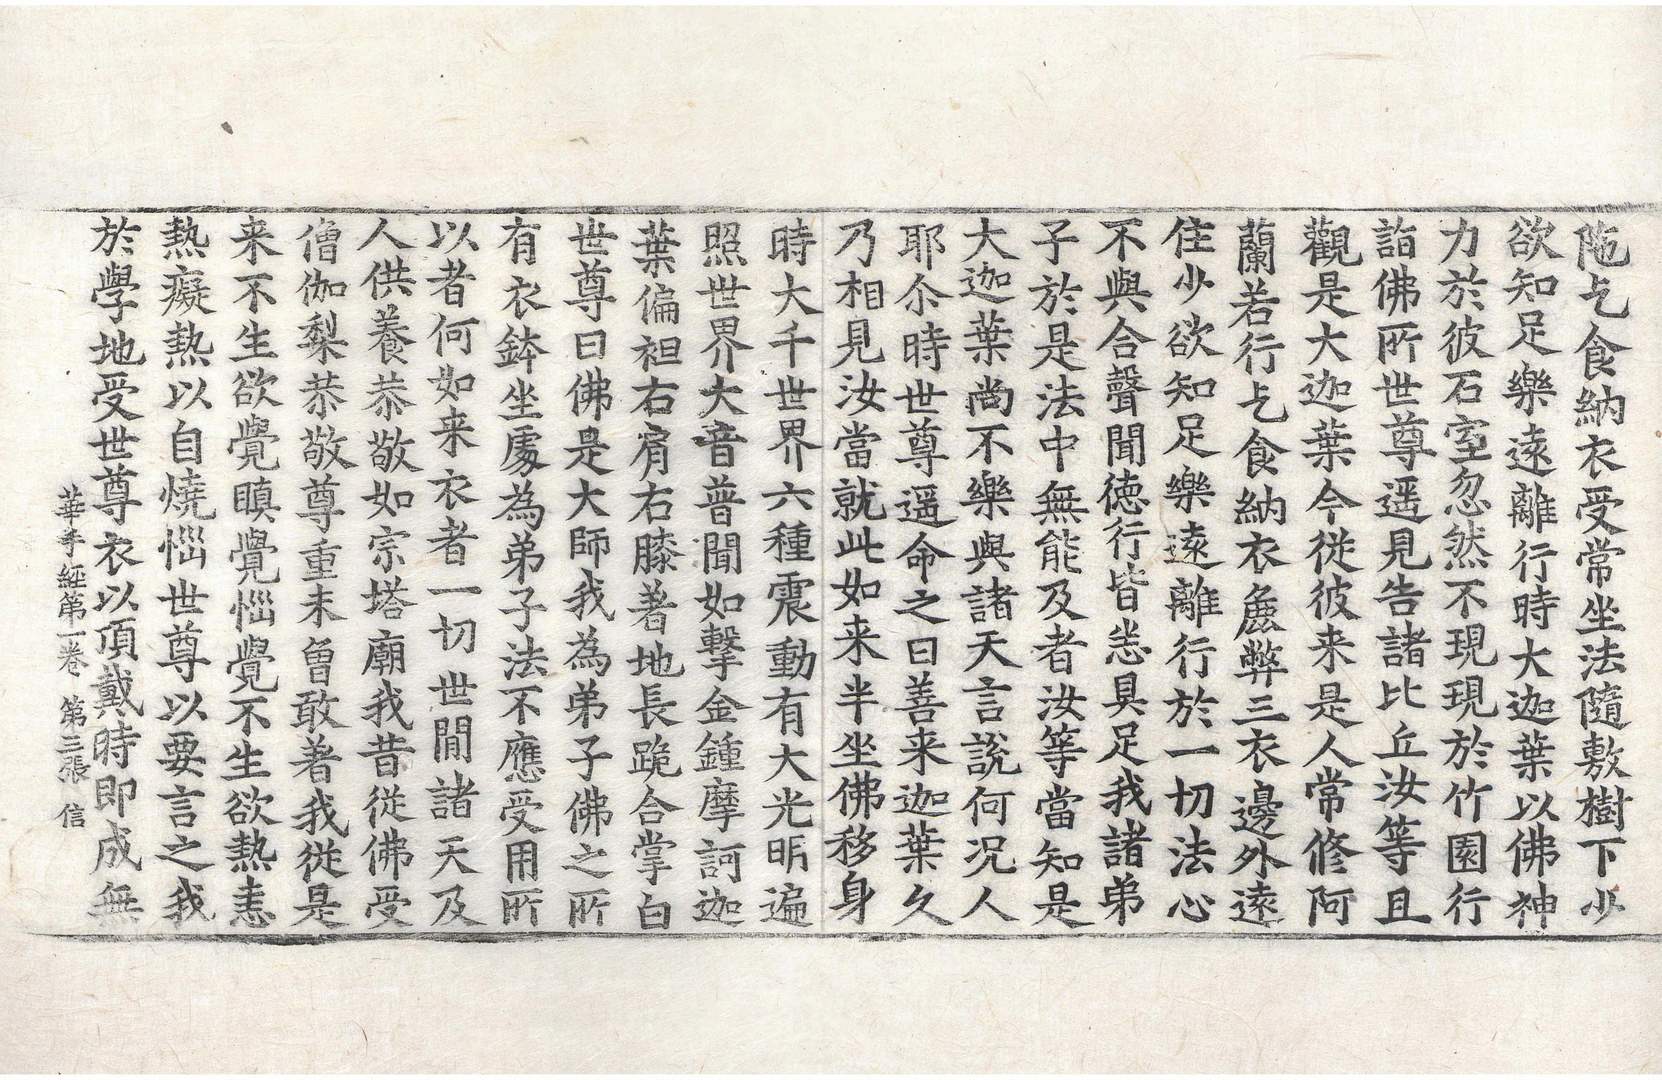 陁乞食納衣受常坐法隨敷樹下少
欲知足樂遠離行時大迦葉以佛神
力於彼石室忽然不現現於竹園行
詣佛所世尊遥見告諸比丘汝等且
觀是大迦葉今從彼来是人常修阿
蘭若行乞食納衣麁弊三衣邊外遠
住少欲知足樂遠離行於一切法心
不與合聲聞德行皆悉具足我諸弟
子於是法中無能及者汝等當知是
大迦葉尚不樂與諸天言說何況人
耶尒時世尊遥命之曰善来迦葉久
乃相見汝當就此如来半坐佛移身
時大千世界六種震動有大光明遍
照世界大音普聞如擊金鍾摩訶迦
葉偏袒右肩右膝著地長跪合掌白
世尊曰佛是大師我為弟子佛之所
有衣鉢坐處為弟子法不應受用所
以者何如来衣者一切世閒諸天及
人供養恭敬如宗塔廟我昔從佛受
僧伽梨恭敬尊重未曾敢著我從是
来不生欲覺瞋覺惱覺不生欲熱恚
熱癡熱以自燒惱世尊以要言之我
於學地受世尊衣以頂戴時即成無
華手經第一卷 第三張 信